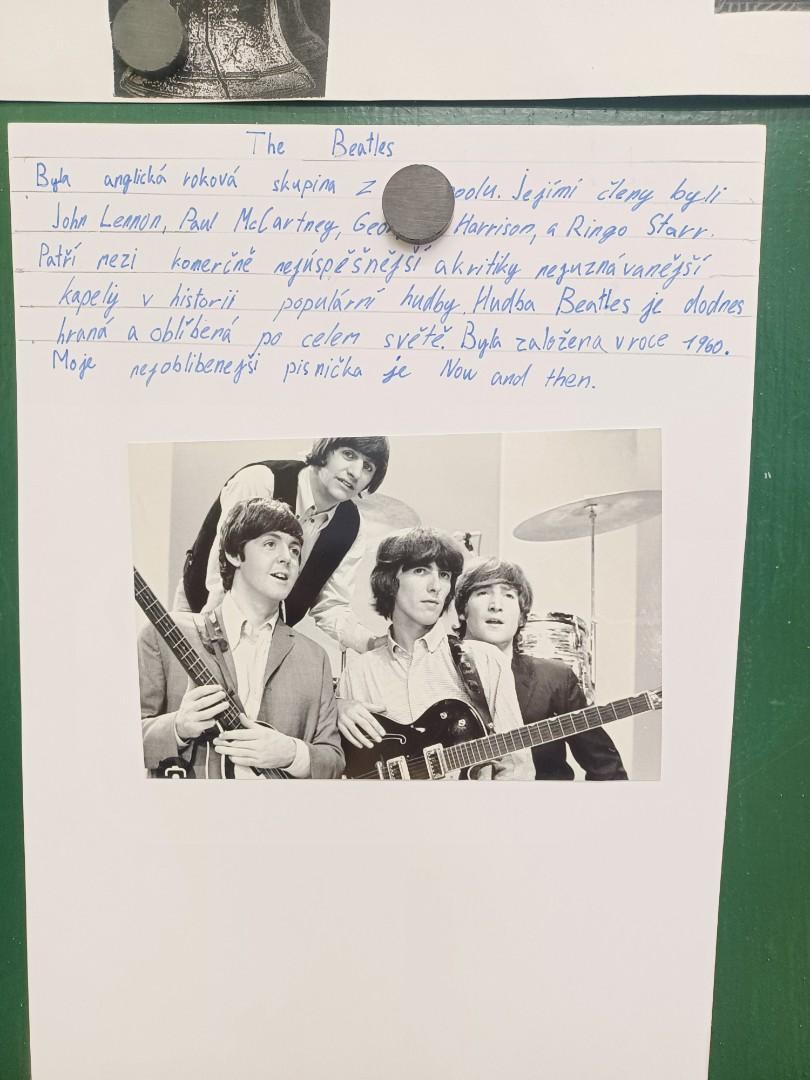 The Beatles
Byla anglická roková skupina z poolu. Jejími členy byli
John Lennon, Paul McCartney, Geo Harrison, a Ringo Starr.
Patří mezi komerčně nejúspěšnější a kritiky nejuznávanější
kapely v historii populární hudby. Hudba Beatles je dodnes
hraná a oblíbená po celem světě. Byla založena v roce 1960.
Moje nejoblibenejši pisnička je Now and then.